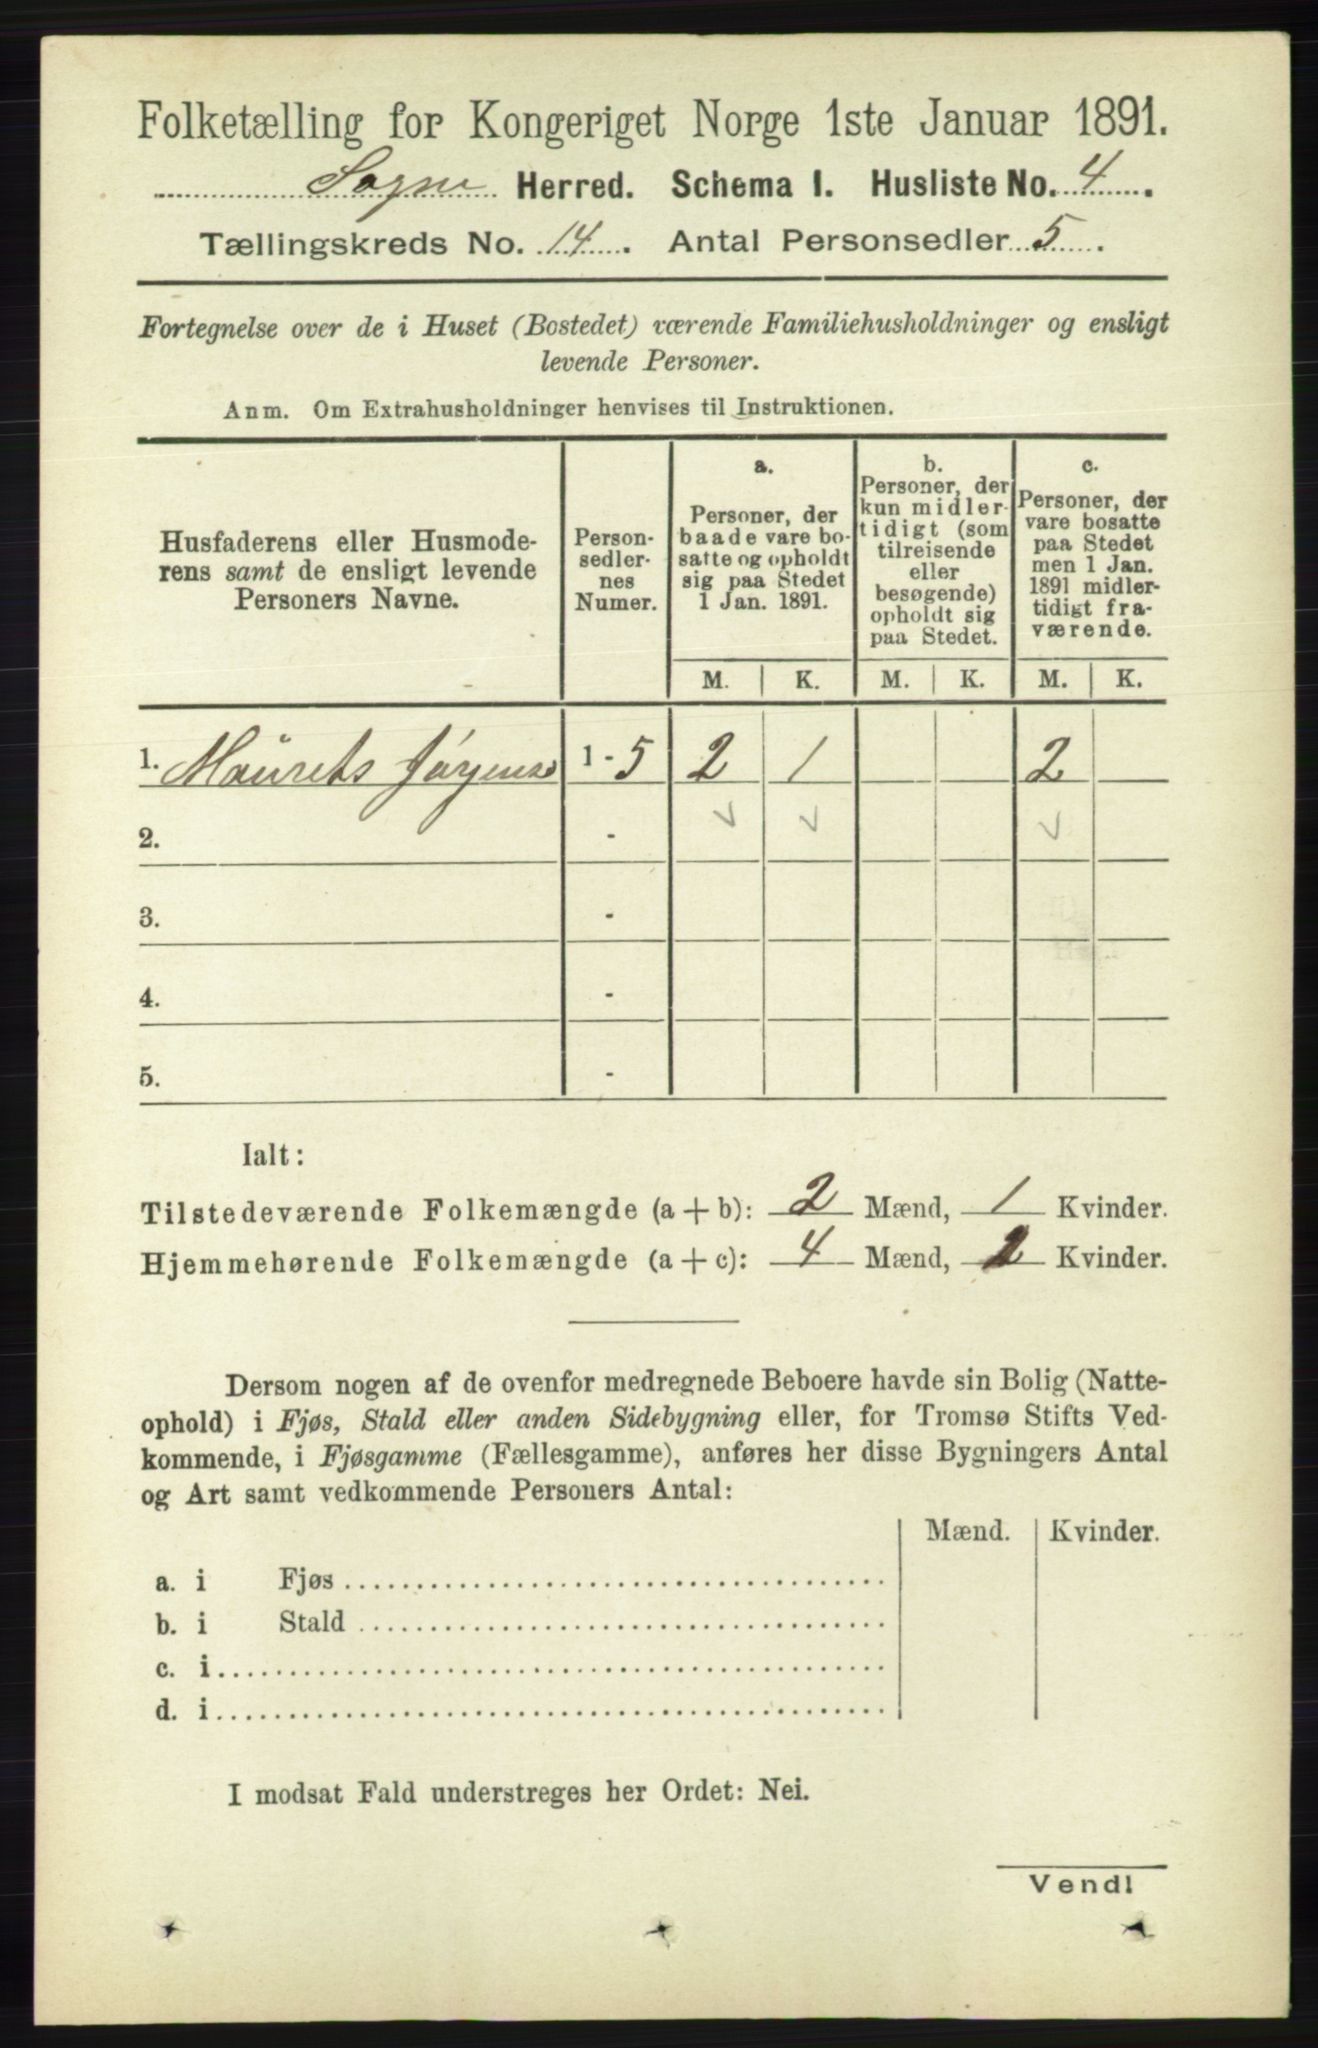 Folketælling for Kongeriget Norge 1ste Januar 1891.
Sogne Herred. Schema I. Husliste No. 4.
Tællingskreds No. 14. Antal Personsedler 5.
Fortegnelse over de i Huset (Bostedet) værende Familiehusholdninger og ensligt
levende Personer.
Anm. Om Extrahusholdninger henvises til Instruktionen.
Husfaderens eller Husmode-
rens samt de ensligt levende
Personers Navne.
Person-
sedler-
nes
Numer.
a.
Personer, der
baade vare bo-
satte og opholdt
sig paa Stedet
1 Jan. 1891.
b.
Personer, der
kun midler-
tidigt (som
tilreisende
eller
besøgende)
opholdt sig
paa Stedet.
c.
Personer, der
vare bosatte
paa Stedet
men 1 Jan.
1891 midler-
tidigt fra-
værende.
M. K. M. K. M. K.
1. Maurets Jørgensen 1 - 5 2 1 2
2. -
3. -
4. -
5. -
Ialt:
Tilstedeværende Folkemængde (a + b): 2 Mænd, 1 Kvinder.
Hjemmehørende Folkemængde (a + c): 4 Mænd, Kvinder.
Dersom nogen af de ovenfor medregnede Beboere havde sin Bolig (Natte-
ophold) i Fjøs, Stald eller anden Sidebygning eller, for Tromsø Stifts Ved-
kommende, i Fjøsgamme (Fællesgamme), anføres her disse Bygningers Antal
og Art samt vedkommende Personers Antal:
Mænd. Kvinder.
a. i Fjøs
b. i Stald
c. i
d. i
I modsat Fald understreges her Ordet: Nei.
Vend!